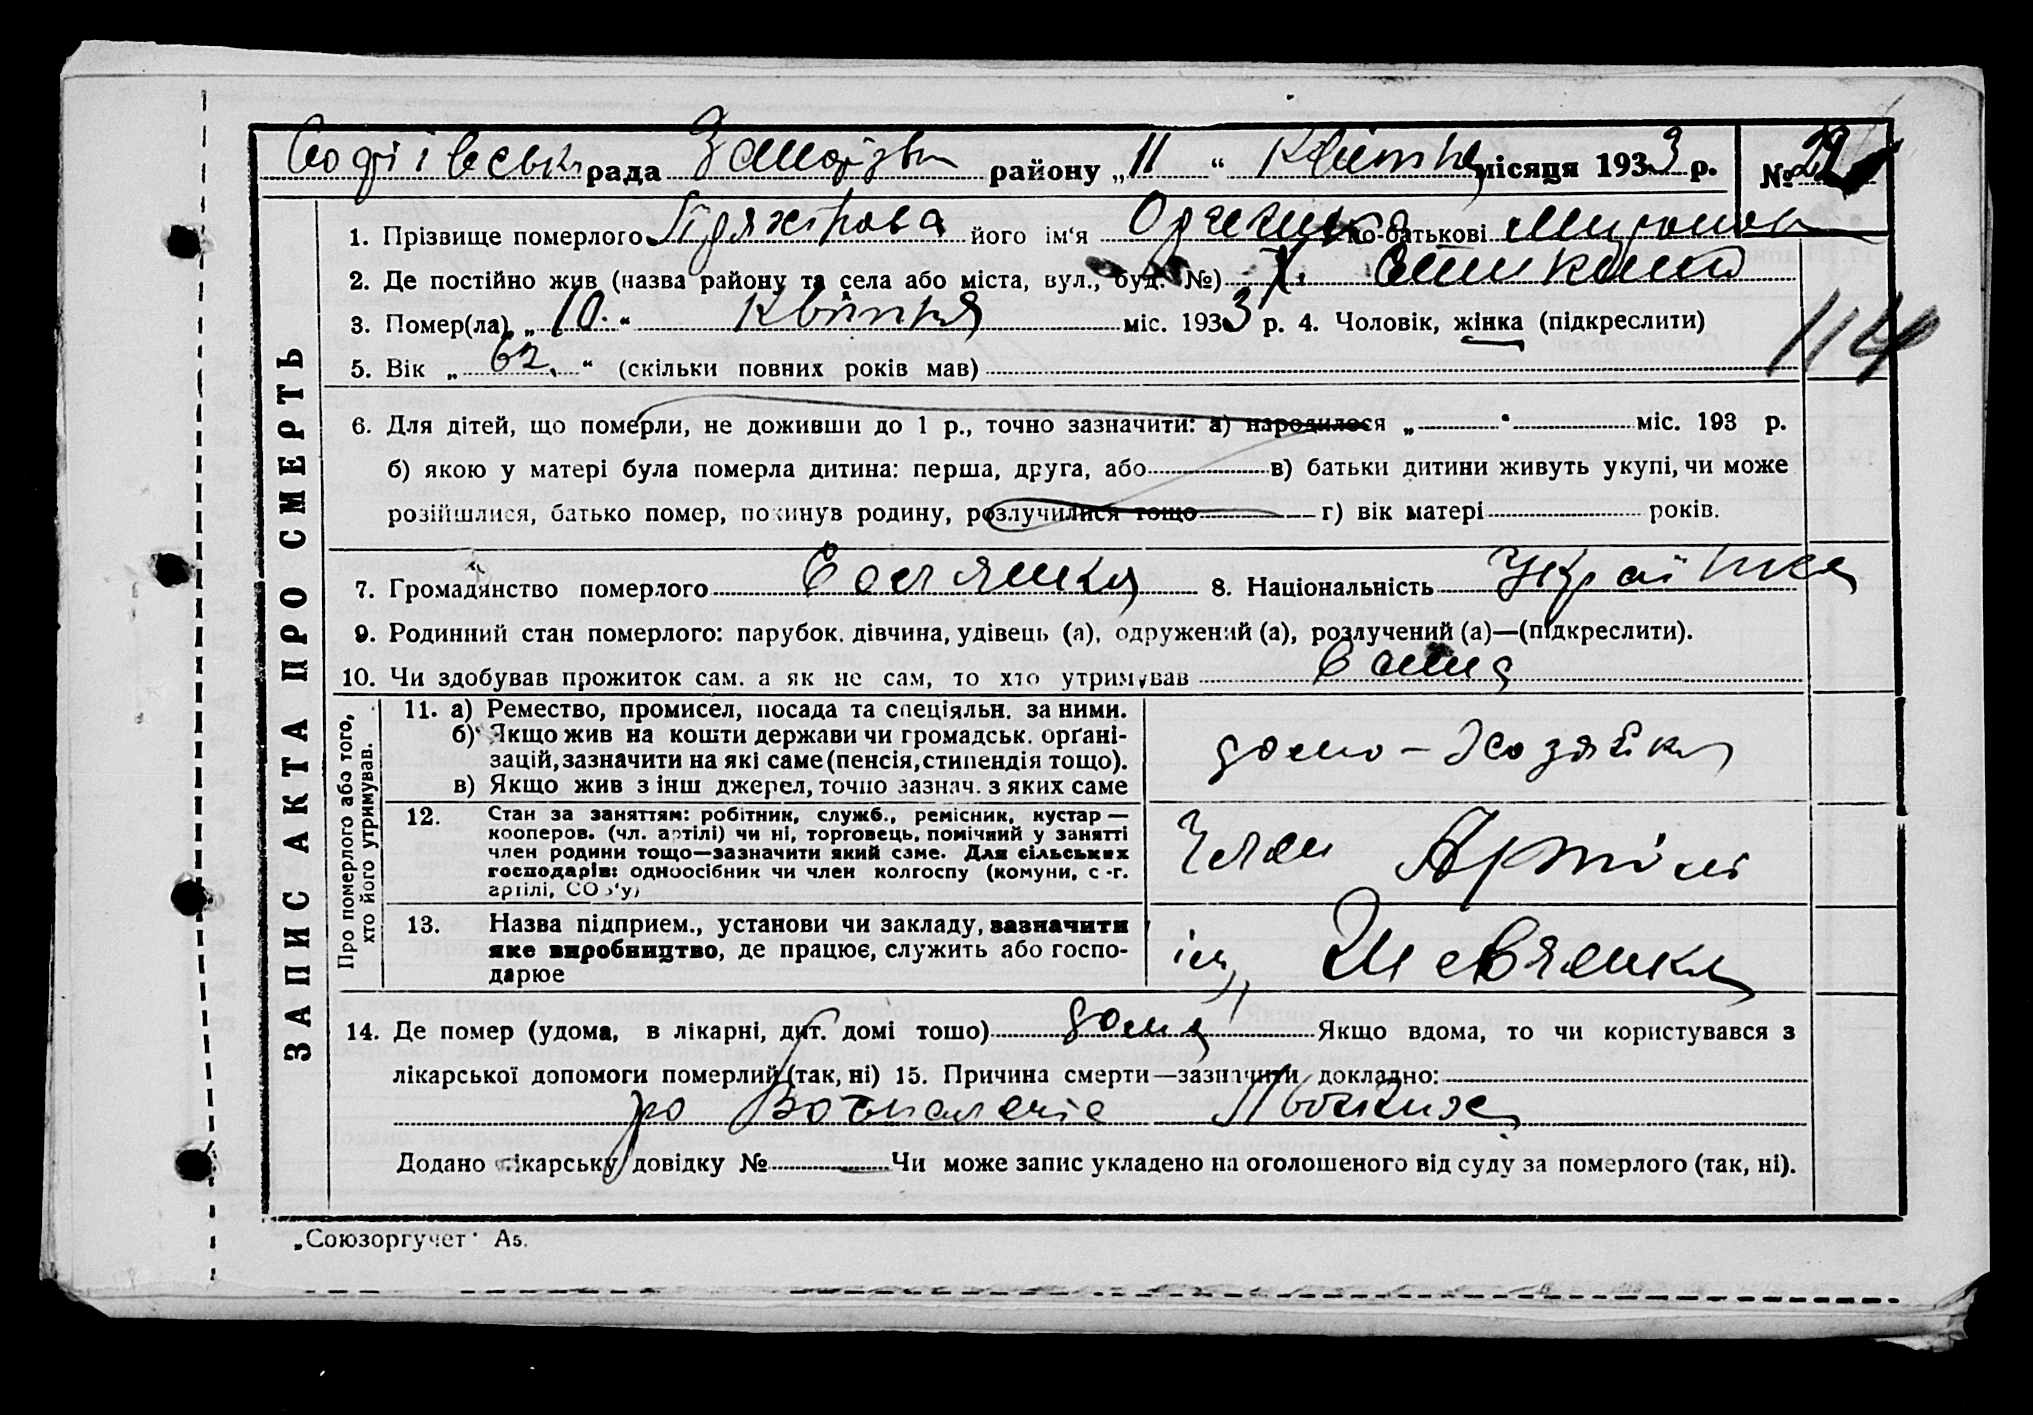 Софіївська рада району „11“ Квітня місяця 1933 р. № 29
ЗАПИС АКТА ПРО СМЕРТЬ
1. Прізвище померлого його ім‘я по-батькові
2. Де постійно жив (назва району та села або міста, вул., буд. №) х.
3. Помер(ла) „10.“ Квітня міс. 1933 р. 4. Чоловік, жінка (підкреслити)
5. Вік „62.“ (скільки повних років мав)
114
6. Для дітей, що померли, не доживши до 1 р., точно зазначити: а) народилося „ “ міс. 193 р.
б) якою у матері була померла дитина: перша, друга, або в) батьки дитини живуть укупі, чи може
розійшлися, батько помер, покинув родину, розлучилися тощо г) вік матері років.
7. Громадянство померлого Селянка 8. Національність Українка
9. Родинний стан померлого: парубок. дівчина, удівець (а), одружений (а), розлучений (а)—(підкреслити).
10. Чи здобував прожиток сам. а як не сам, то хто утримував Сама
Про померлого або того, хто його утримував.
11. а) Ремество, промисел, посада та спеціяльн. за ними.
б) Якщо жив на кошти держави чи громадськ. орґані-
зацій, зазначити на які саме (пенсія, стипендія тощо).
в) Якщо жив з інш джерел, точно зазнач. з яких саме
домо-хозяйка
12. Стан за заняттям: робітник, служб., ремісник, кустар —
кооперов. (чл. артілі) чи ні, торговець, помічний у занятті
член родини тощо—зазначити який саме. Для сільських
господарів: одноосібник чи член колгоспу (комуни, с-г.
артілі, СОЗ'у)
Член Артілі
13. Назва підприєм., установи чи закладу, зазначити
яке виробництво, де працює, служить або госпо-
дарює
ім. Шевченка
14. Де помер (удома, в лікарні, дит. домі тощо) дома Якщо вдома, то чи користувався з
лікарської допомоги померлий (так, ні) 15. Причина смерти—зазначити докладно:
Воспаленіе
Додано лікарську довідку № Чи може запис укладено на оголошеного від суду за померлого (так, ні).
„Союзоргучет“ А5.